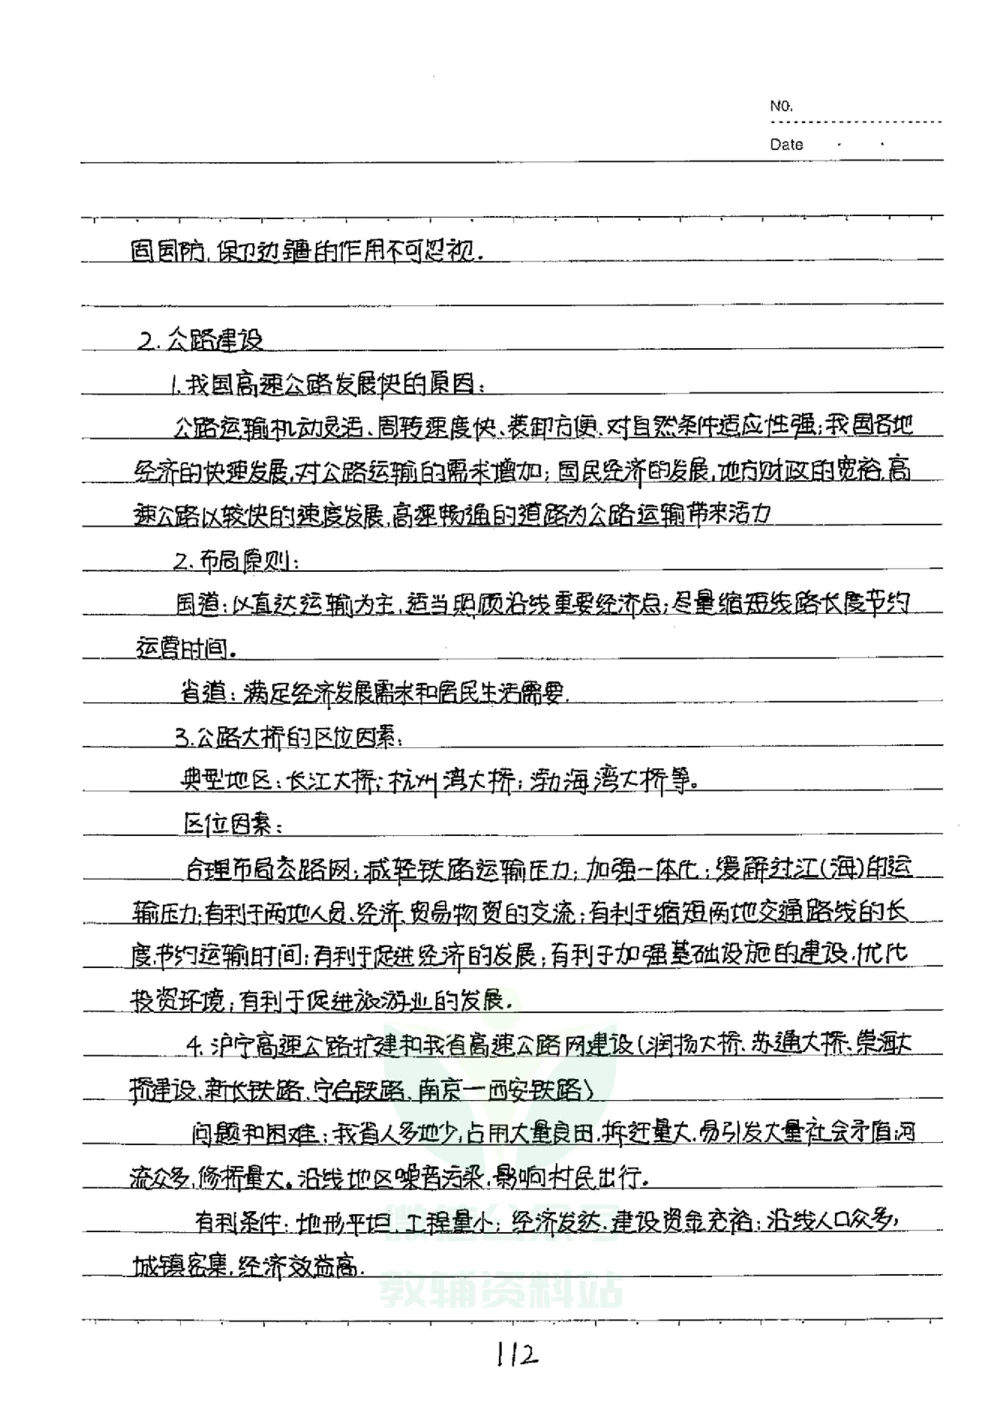 NO.
Date
固国防,保卫边疆的作用不可忽视.
2.公路建设
1.我国高速公路发展快的原因:
公路运输机动灵活、周转速度快、装卸方便、对自然条件适应性强;我国各地
经济的快速发展,对公路运输的需求增加;国民经济的发展,地方财政的宽裕,高
速公路以较快的速度发展,高速畅通的道路为公路运输带来活力
2.布局原则:
国道:以直达运输为主,适当照顾沿线重要经济点;尽量缩短线路长度节约
运营时间。
省道:满足经济发展需求和居民生活需要.
3.公路大桥的区位因素:
典型地区:长江大桥;杭州湾大桥;渤海湾大桥等。
区位因素:
合理布局公路网;减轻铁路运输压力;加强一体化;缓解过江(海)的运
输压力;有利于两地人员、经济、贸易物资的交流;有利于缩短两地交通路线的长
度,节约运输时间;有利于促进经济的发展;有利于加强基础设施的建设,优化
投资环境;有利于促进旅游业的发展.
4.沪宁高速公路扩建和我省高速公路网建设(润扬大桥、苏通大桥、崇海大
桥建设、新长铁路、宁启铁路、南京一西安铁路)
问题和困难:我省人多地少,占用大量良田,拆迁量大,易引发大量社会矛盾;河
流众多,修桥量大。沿线地区噪音污染,影响村民出行。
有利条件:地形平坦,工程量小;经济发达,建设资金充裕;沿线人口众多,
城镇密集,经济效益高.
教辅资料站
112